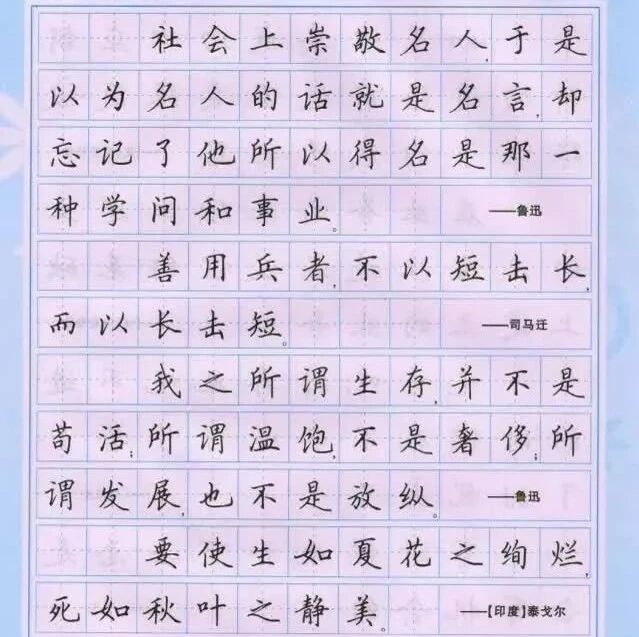 社会上崇敬名人,于是
以为名人的话就是名言,却
忘记了他所以得名是那一
种学问和事业。——鲁迅
善用兵者,不以短击长,
而以长击短。——司马迁
我之所谓生存,并不是
苟活;所谓温饱,不是奢侈;所
谓发展,也不是放纵。——鲁迅
要使生如夏花之绚烂,
死如秋叶之静美。——[印度]泰戈尔